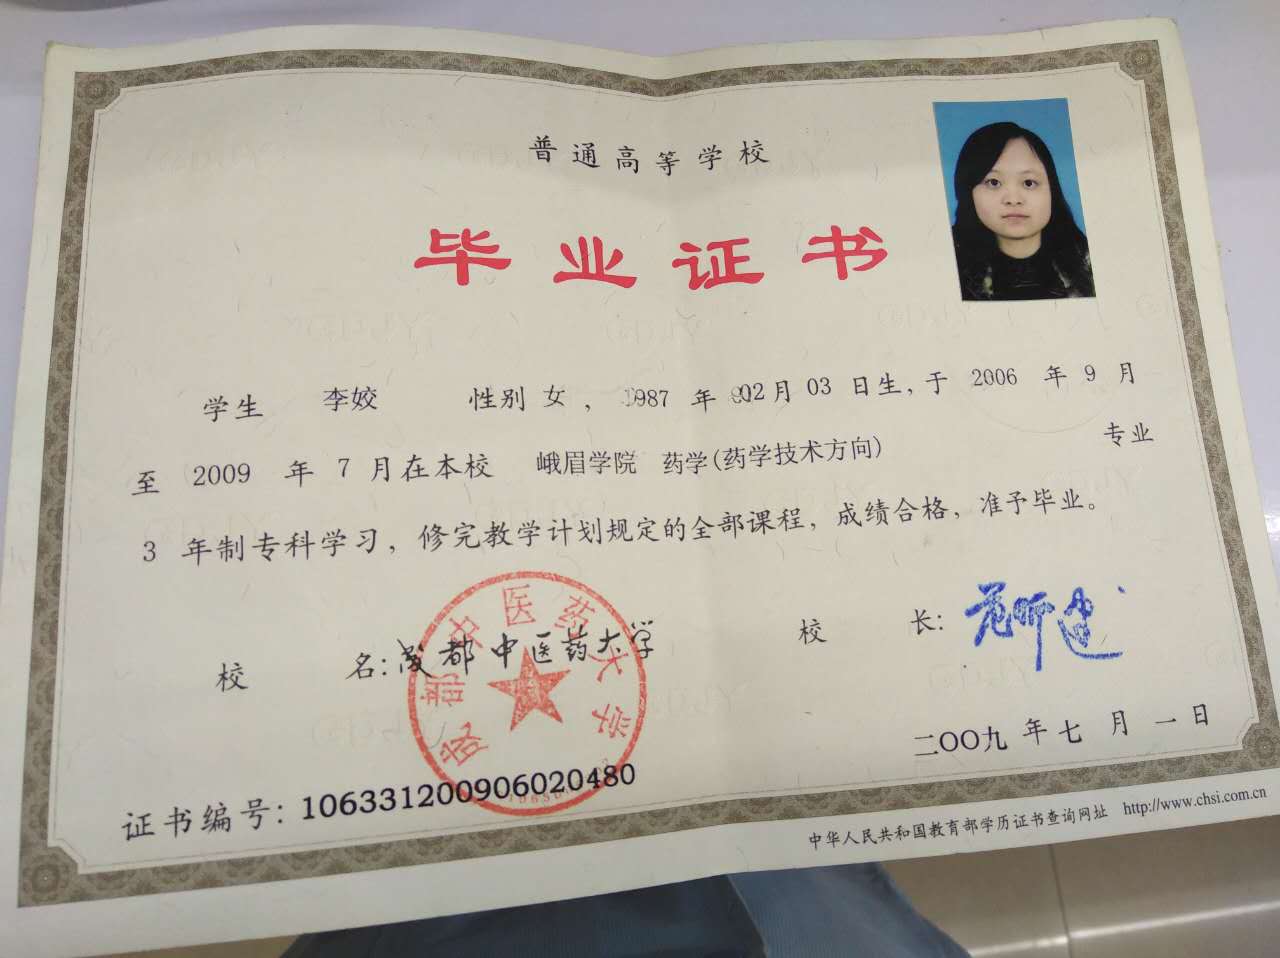 普通高等学校
毕业证书
学生 李姣 性别 女，1987 年 02月 03 日生，于 2006 年 9 月
至 2009 年 7 月在本校 峨眉学院 药学(药学技术方向) 专业
3 年制专科学习，修完教学计划规定的全部课程，成绩合格，准予毕业。
校 名：成都中医药大学 校 长：
成都中医药大学
二〇〇九 年 七 月 一 日
证书编号：106331200906020480
中华人民共和国教育部学历证书查询网址 http://www.chsi.com.cn